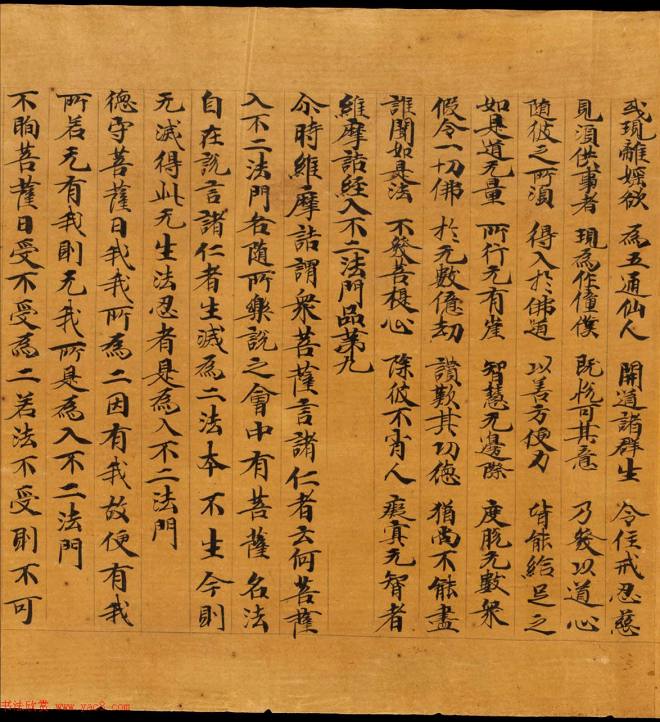 或現離婬欲 為五通仙人 開道諸群生 令住戒忍慈
見須供事者 現為作僮僕 既悅可其意 乃發以道心
隨彼之所須 得入於佛道 以善方便力 皆能給足之
如是道无量 所行无有崖 智慧无邊際 度脫无數衆
假令一切佛 於无數億劫 讚歎其功德 猶尚不能盡
誰聞如是法 不發菩提心 除彼不肖人 癡冥无智者
維摩詰經入不二法門品第九
尒時維摩詰謂衆菩薩言諸仁者云何菩薩
入不二法門各随所樂說之會中有菩薩名法
自在說言諸仁者生滅為二法本不生今則
无滅得此无生法忍者是為入不二法門
德守菩薩曰我我所為二因有我故便有我
所若无有我則无我所是為入不二法門
不眴菩薩曰受不受為二若法不受則不可
书法欣赏 www.yac8.com